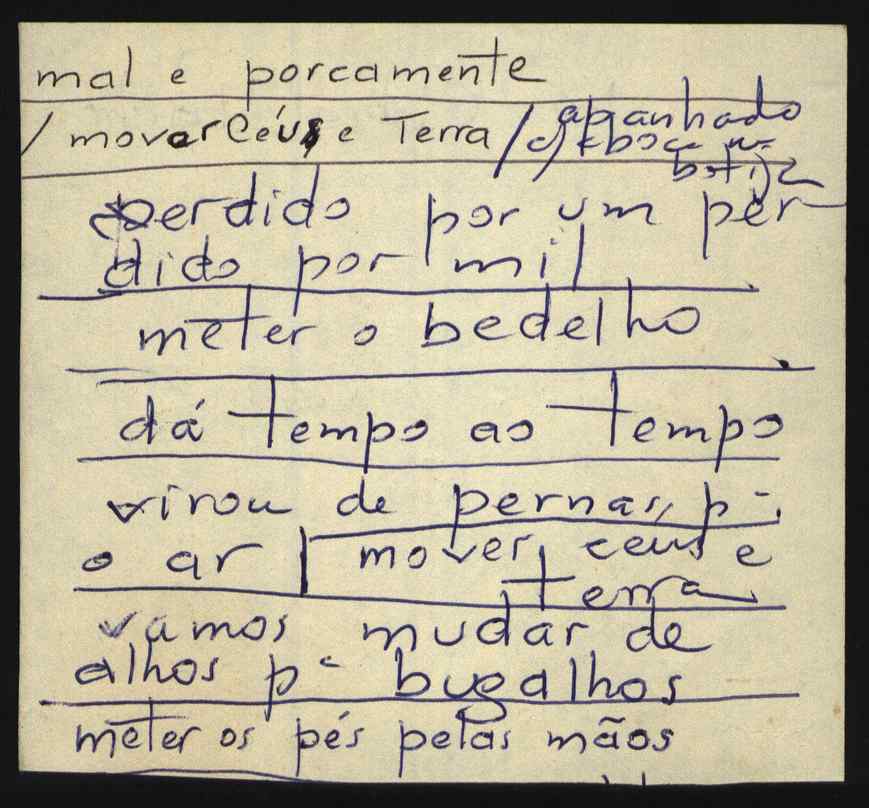 mal e porcamente
/ mover Céus e Terra / apanhado
c/ a boca na
botija
perdido por um per-
dido por mil
meter o bedelho
dá tempo ao tempo
virou de pernas p-
o ar | mover ceus e
terra
vamos mudar de
alhos p- bugalhos
meter os pés pelas mãos